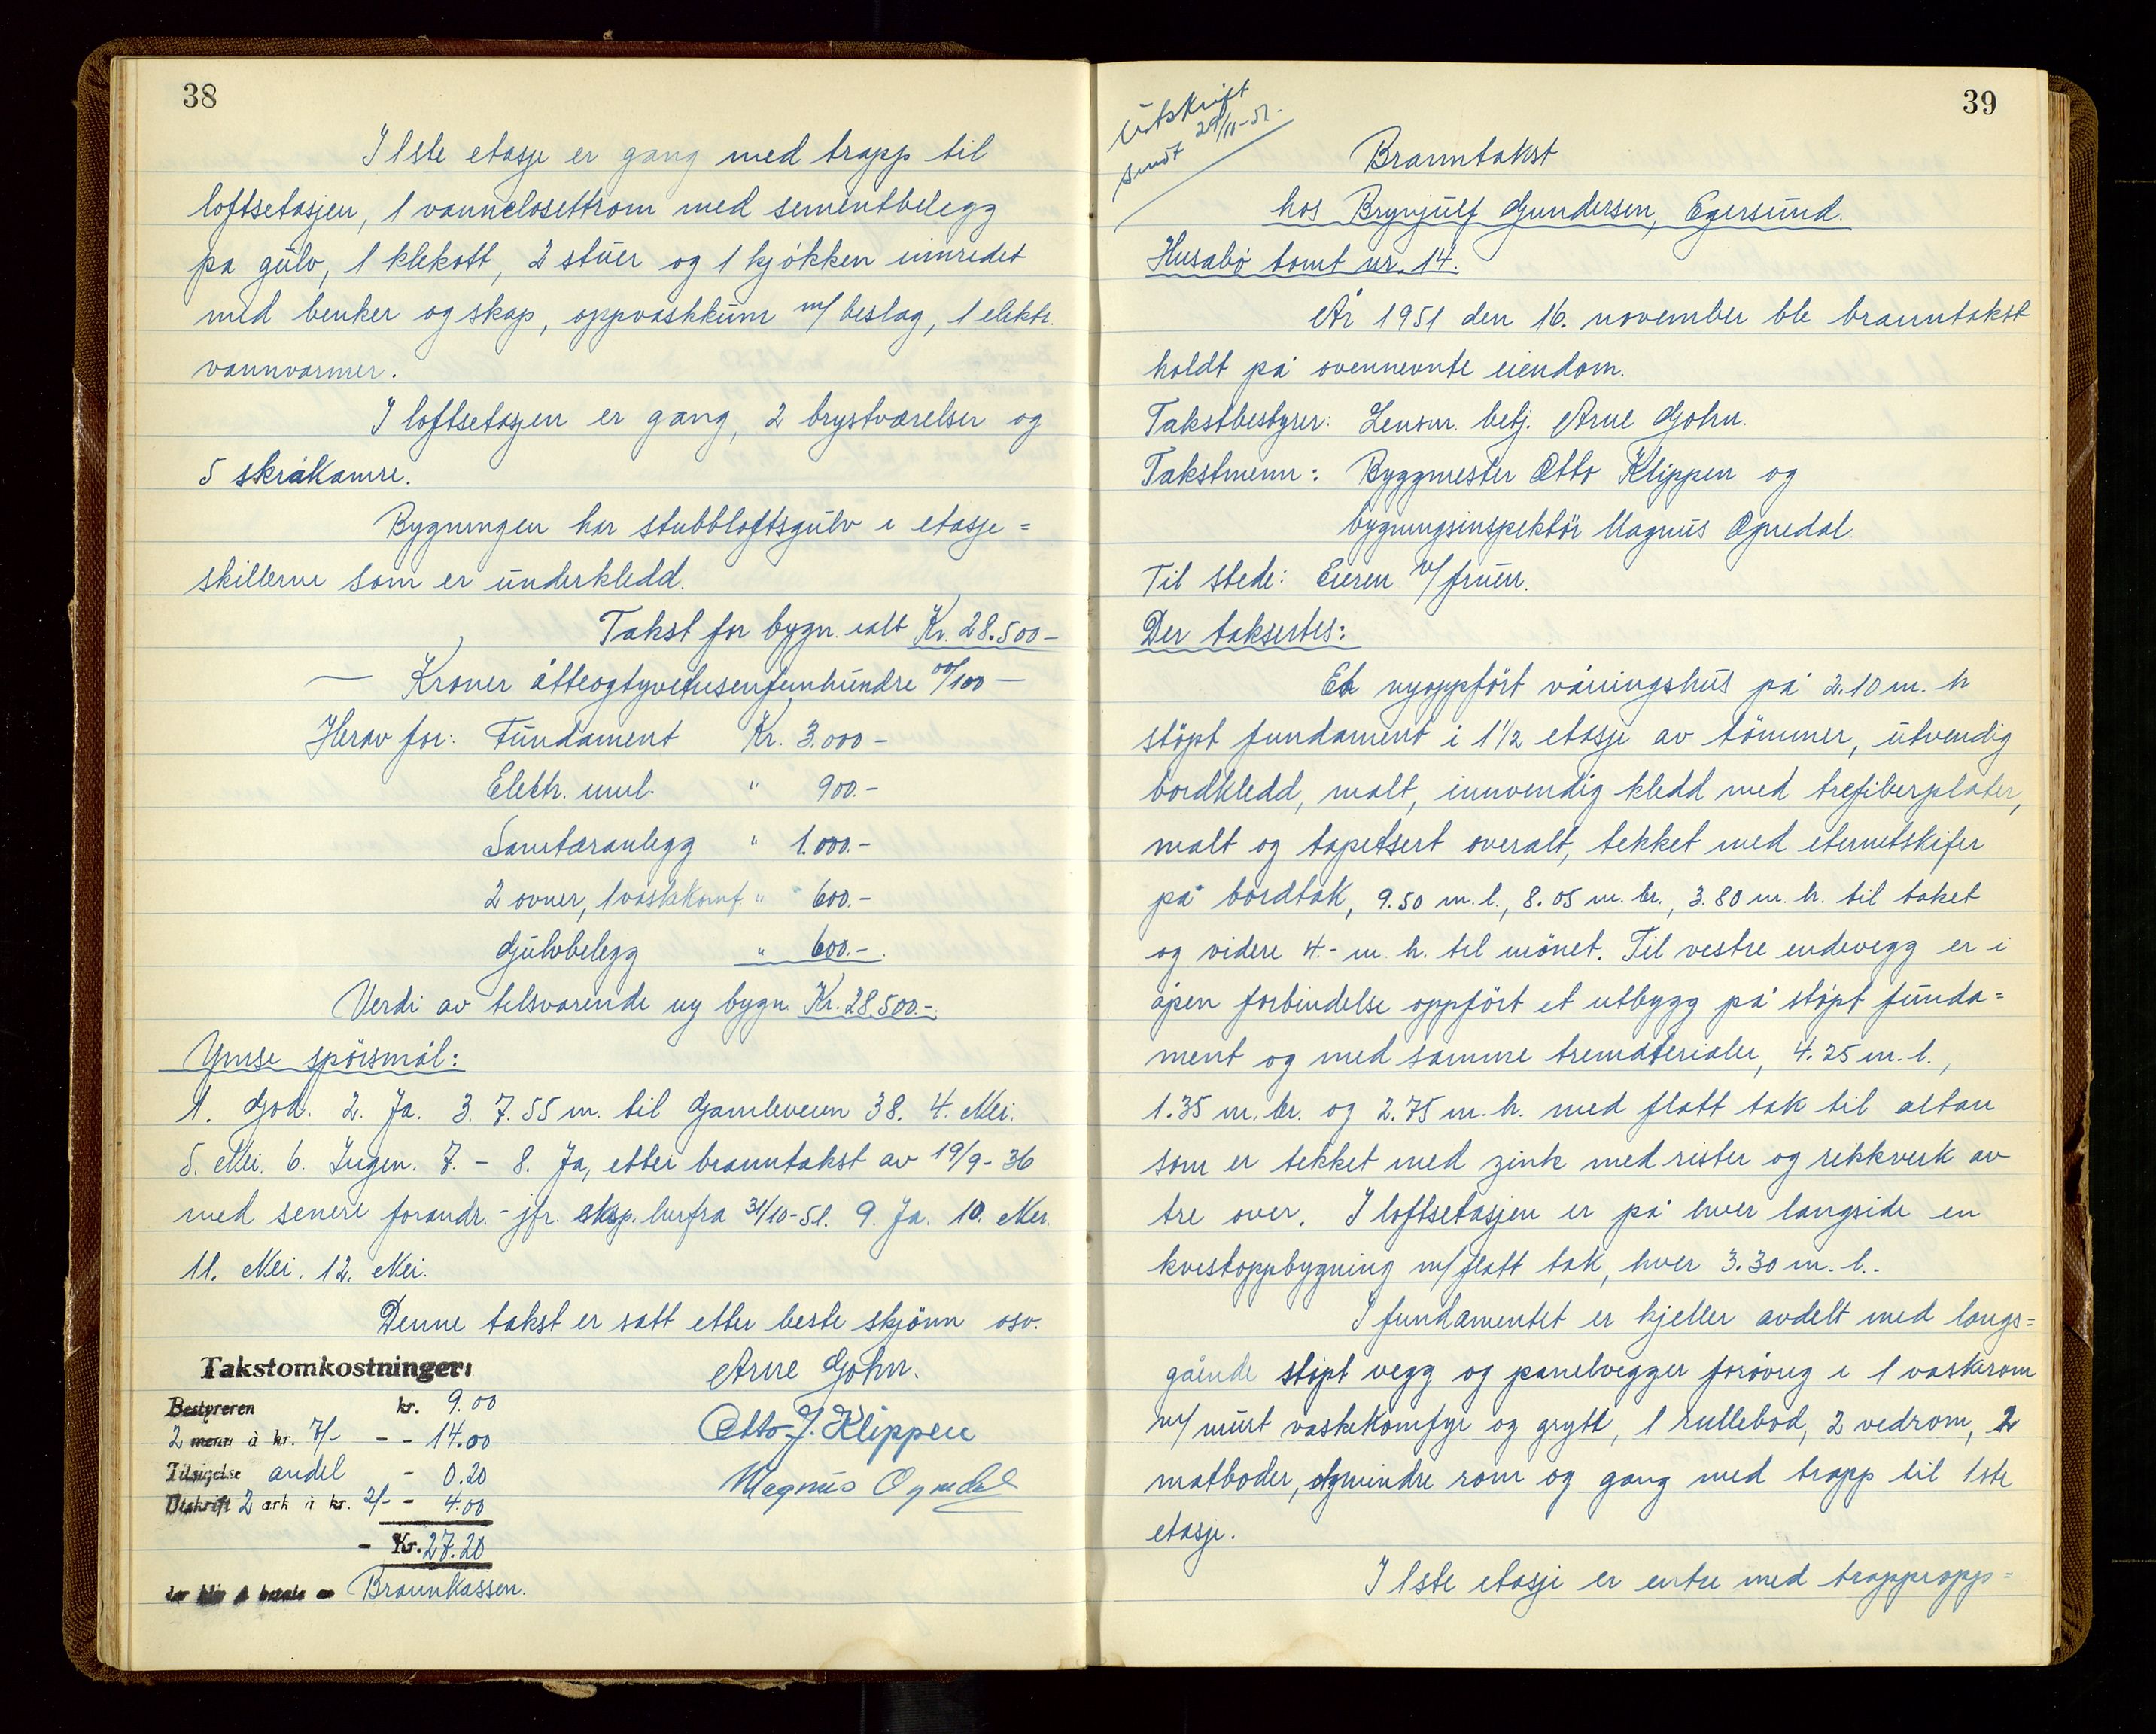 38
I 1ste etasje er gang med trapp til
loftsetasjen, 1 vannclosettrom med sementbelegg
på gulv, 1 klekott, 2 stuer og 1 kjøkken innredet
med benker og skap, oppvaskkum m/ beslag, 1 elektr.
vannvarmer.
I loftsetasjen er gang, 2 brystværelser og
5 skråkamre.
Bygningen har stubbloftsgulv i etasje=
skillerne som er underkledd.
Takst for bygn. ialt Kr. 28.500-
— Kroner åtteogtyvetusenfemhundre 00/100 —
Herav for: Fundament Kr. 3.000-
Elektr. innl. " 900.-
Sanitæranlegg " 1.000.-
2 ovner, 1 vaskkomf. " 600.-
Gulvbelegg " 600.-.
Verdi av tilsvarende ny bygn. Kr. 28.500.-.
Ymse spörsmål:
1. God. 2. Ja. 3. 7.55 m. til Gamleveien 38. 4. Nei.
5. Nei. 6. Ingen. 7. - 8. Ja, etter branntakst av 19/9-36
med senere forandr. - jfr. eksp. herfra 31/10-51. 9. Ja. 10. Nei.
11. Nei. 12. Nei.
Denne takst er satt etter beste skjönn osv.
Takstomkostninger:
Bestyreren kr. 9.00
2 menn à kr. 7/- - - 14.00
Tilsigelse andel - 0.20
Utskrift 2 ark à kr. 2/- - 4.00
- Kr. 27.20
der blir å betale av Brannkassen.
Arne Gohn.
Otto J. Klippen
Magnus Opsedal
39
Utskrift
sendt 29/11-51.
Branntakst
hos Brynjulf Gundersen, Egersund.
Husabø tomt nr. 14.
År 1951 den 16. november ble branntakst
holdt på ovennevnte eiendom.
Takstbestyrer: Lensm. betj. Arne Gohn.
Takstmenn: Byggmester Otto Klippen og
bygningsinspektör Magnus Opsedal.
Til stede: Eieren v/ fruen.
Der taksertes:
Et nyoppfört våningshus på 2.10 m. h
stöpt fundament i 1 1/2 etasje av tömmer, utvendig
bordkledd, malt, innvendig kledd med trefiberplater,
malt og tapetsert overalt, tekket med eternitskifer
på bordtak, 9.50 m. l., 8.05 m. br., 3.80 m. h. til taket
og videre 4.- m. h. til mönet. Til vestre endevegg er i
åpen forbindelse oppfört et utbygg på stöpt funda=
ment og med samme trematerialer, 4.25 m. l.,
1.35 m. br. og 2.75 m. h. med flatt tak til altan
som er tekket med zink med rister og rekkverk av
tre over. I loftsetasjen er på hver langside en
kvistoppbygning m/ flatt tak, hver 3.30 m. l..
I fundamentet er kjeller avdelt med langs=
gående stöpt vegg og panelvegger forövrig i 1 vaskerom
m/ murt vaskekomfyr og gryte, 1 rullebod, 2 vedrom, 2
matboder, mindre rom og gang med trapp til 1ste
etasje.
I 1ste etasje er entre med trappeopp=